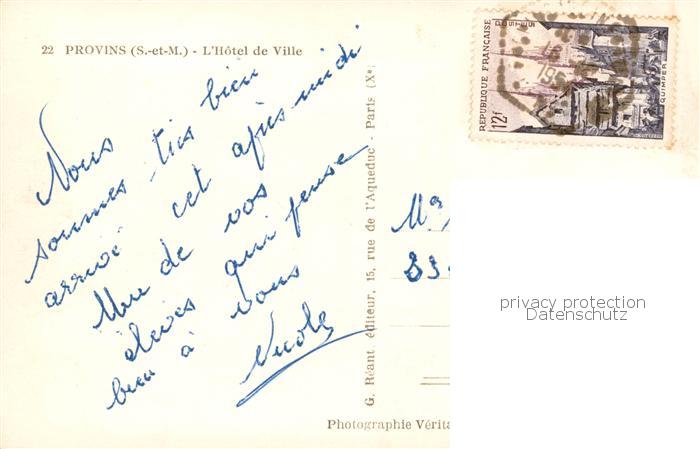 22 PROVINS (S.-et-M.) - L'Hôtel de Ville
Nous
sommes très bien
arrivé cet après midi
Une de vos
élèves qui pense
bien à vous
Nicole
G. Réant, éditeur, 15, rue de l'Aqueduc - Paris (Xe)
Photographie Vérita
REPUBLIQUE FRANÇAISE
12f
POSTES
QUIMPER
Me
33
privacy protection
Datenschutz